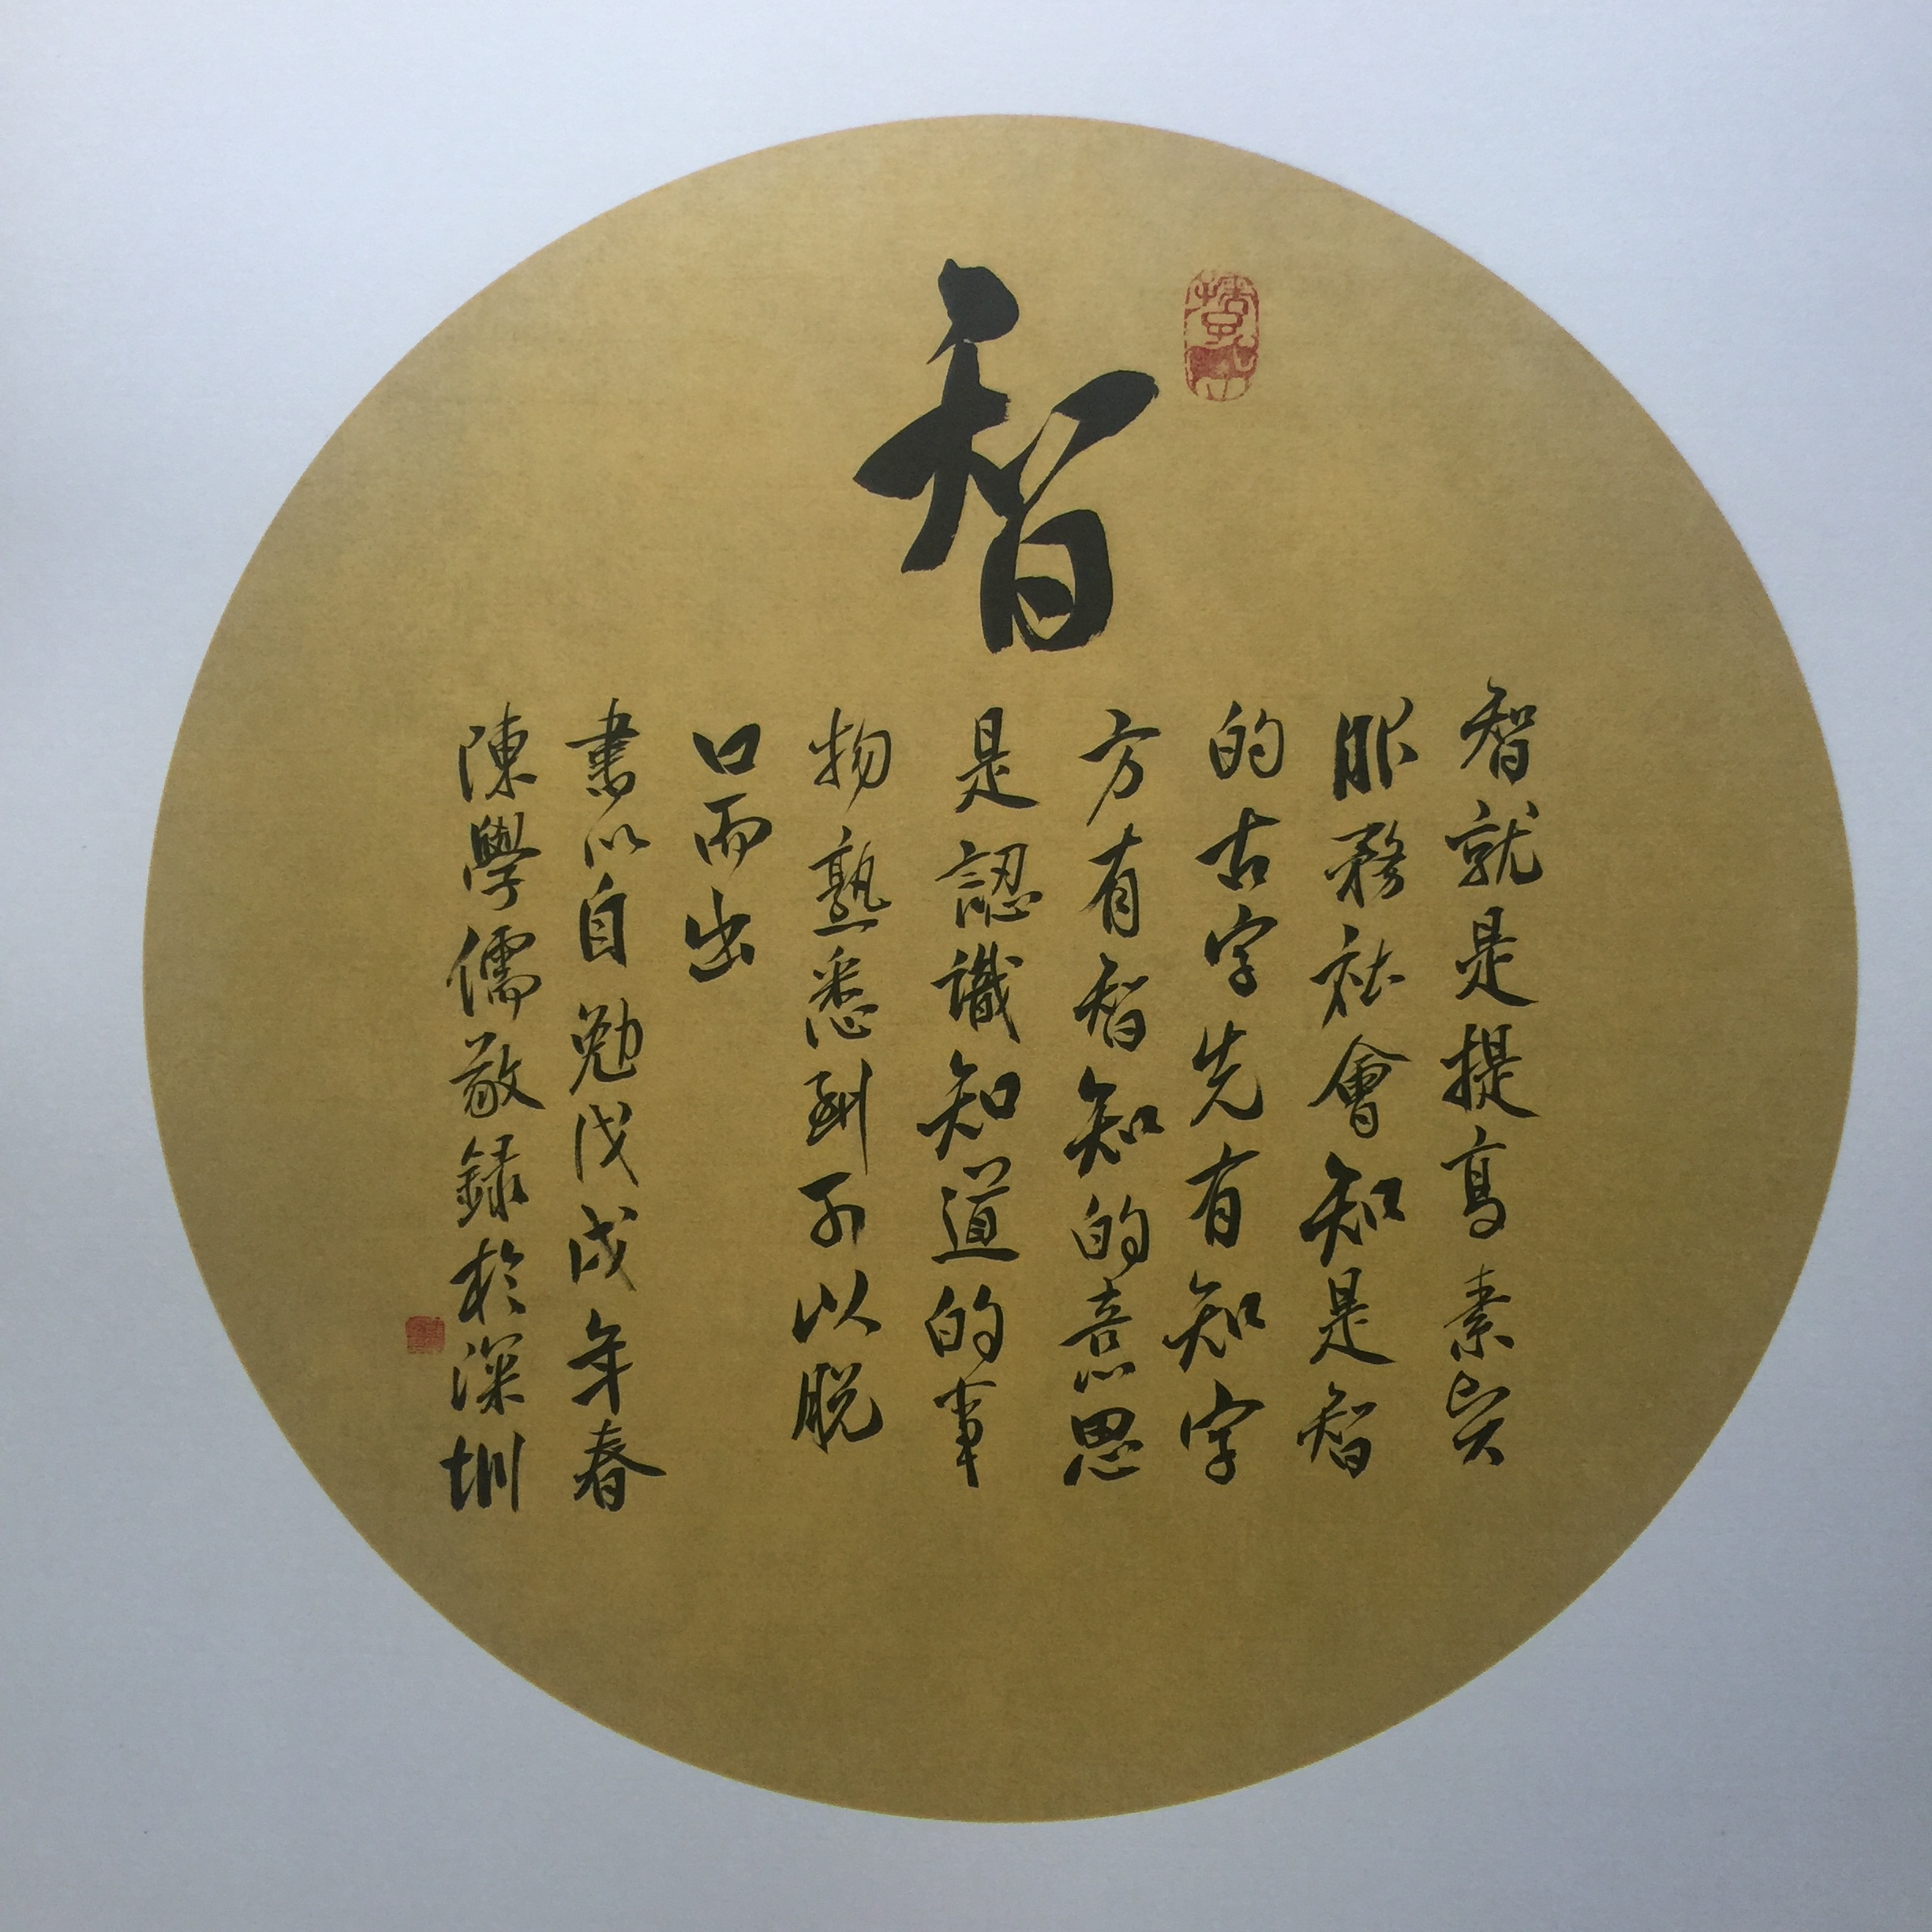 智
智就是提高素質
服務社會知是智
的古字先有知字
方有智知的意思
是認識知道的事
物熟悉到可以脫
口而出
書以自勉戊戌年春
陳學儒敬録於深圳